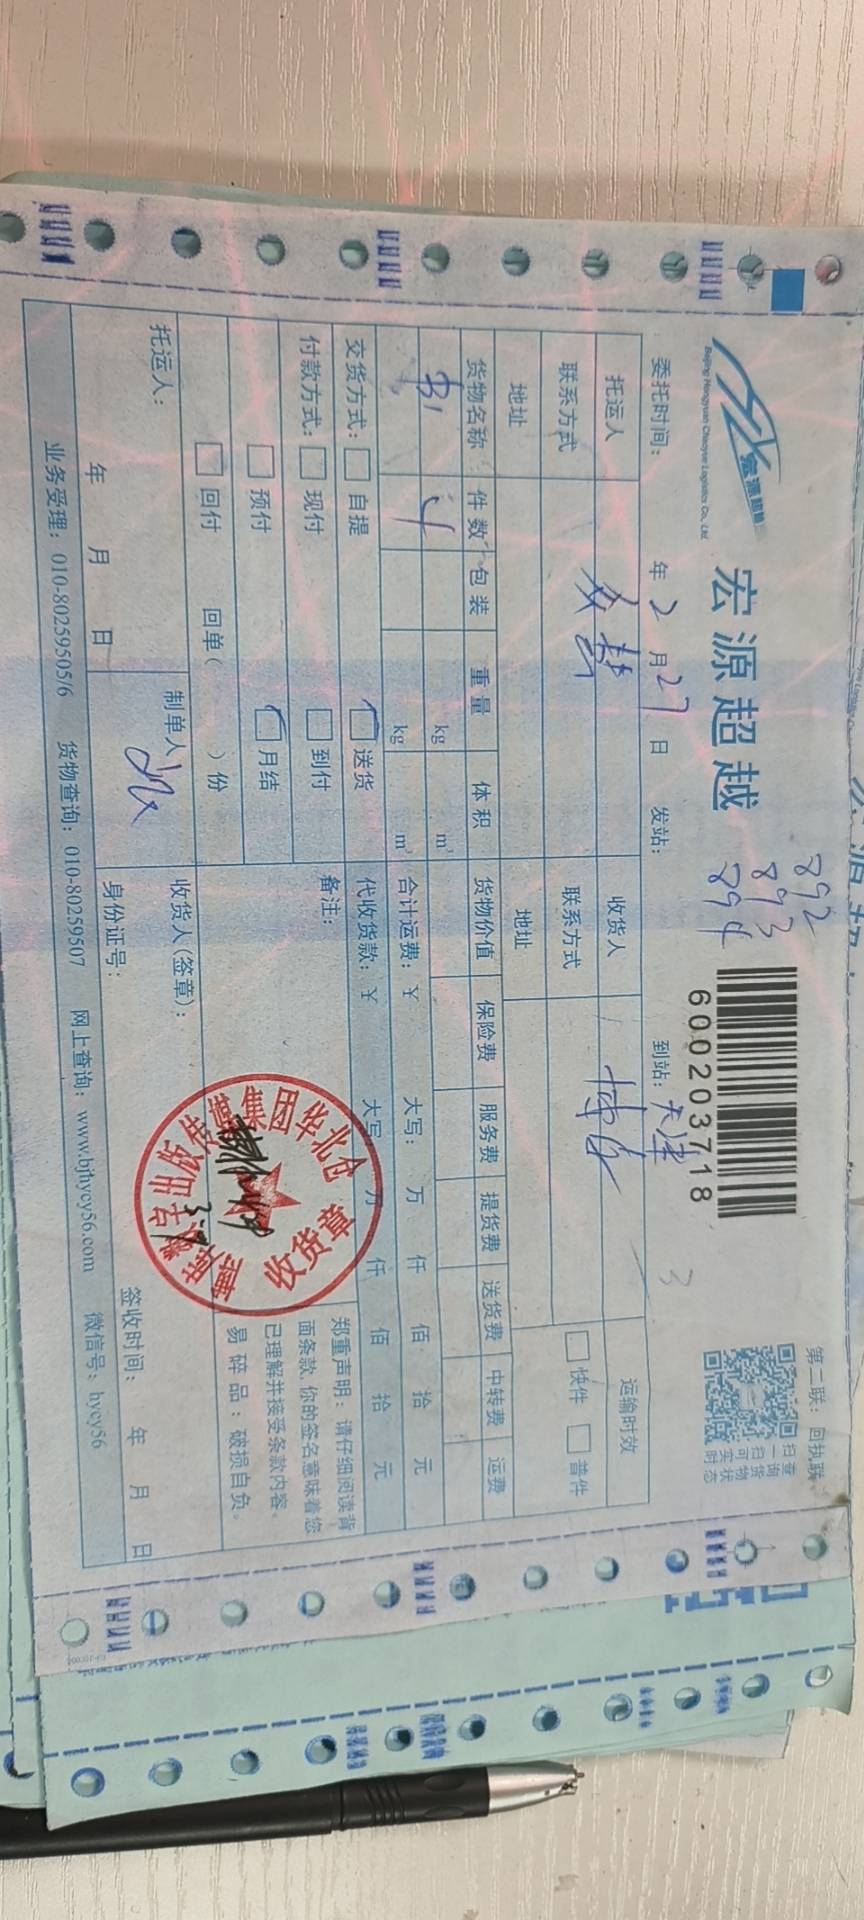 宏源超越
Beijing Hongyuan Chaoyue Logistics Co., Ltd.
宏源超越
892
893
894
6000203718
第二联：回执联
扫一扫 查询货物实时状态
委托时间： 年 2 月 27 日 发站： 到站：天津
托运人 收货人 运输时效
联系方式 联系方式 快件 普件
地址 地址
货物名称 件数 包装 重量 体积 货物价值 保险费 服务费 提货费 送货费 中转费 运费
书 4 kg m³
kg m³
合计运费：￥ 大写： 万 仟 佰 拾 元
交货方式： 自提 送货 代收货款：￥ 大写： 万 仟 佰 拾 元
付款方式： 现付 到付 备注：
预付 月结
回付 回单（ ）份
郑重声明：请仔细阅读背
面条款，你的签名意味着您
已理解并接受条款内容。
易碎品：破损自负。
出版传媒集团华北仓
收货章
托运人： 制单人 收货人(签章)：
年 月 日 身份证号： 签收时间： 年 月 日
业务受理：010-80259505/6 货物查询：010-80259507 网上查询：www.bjhycy56.com 微信号：hycy56